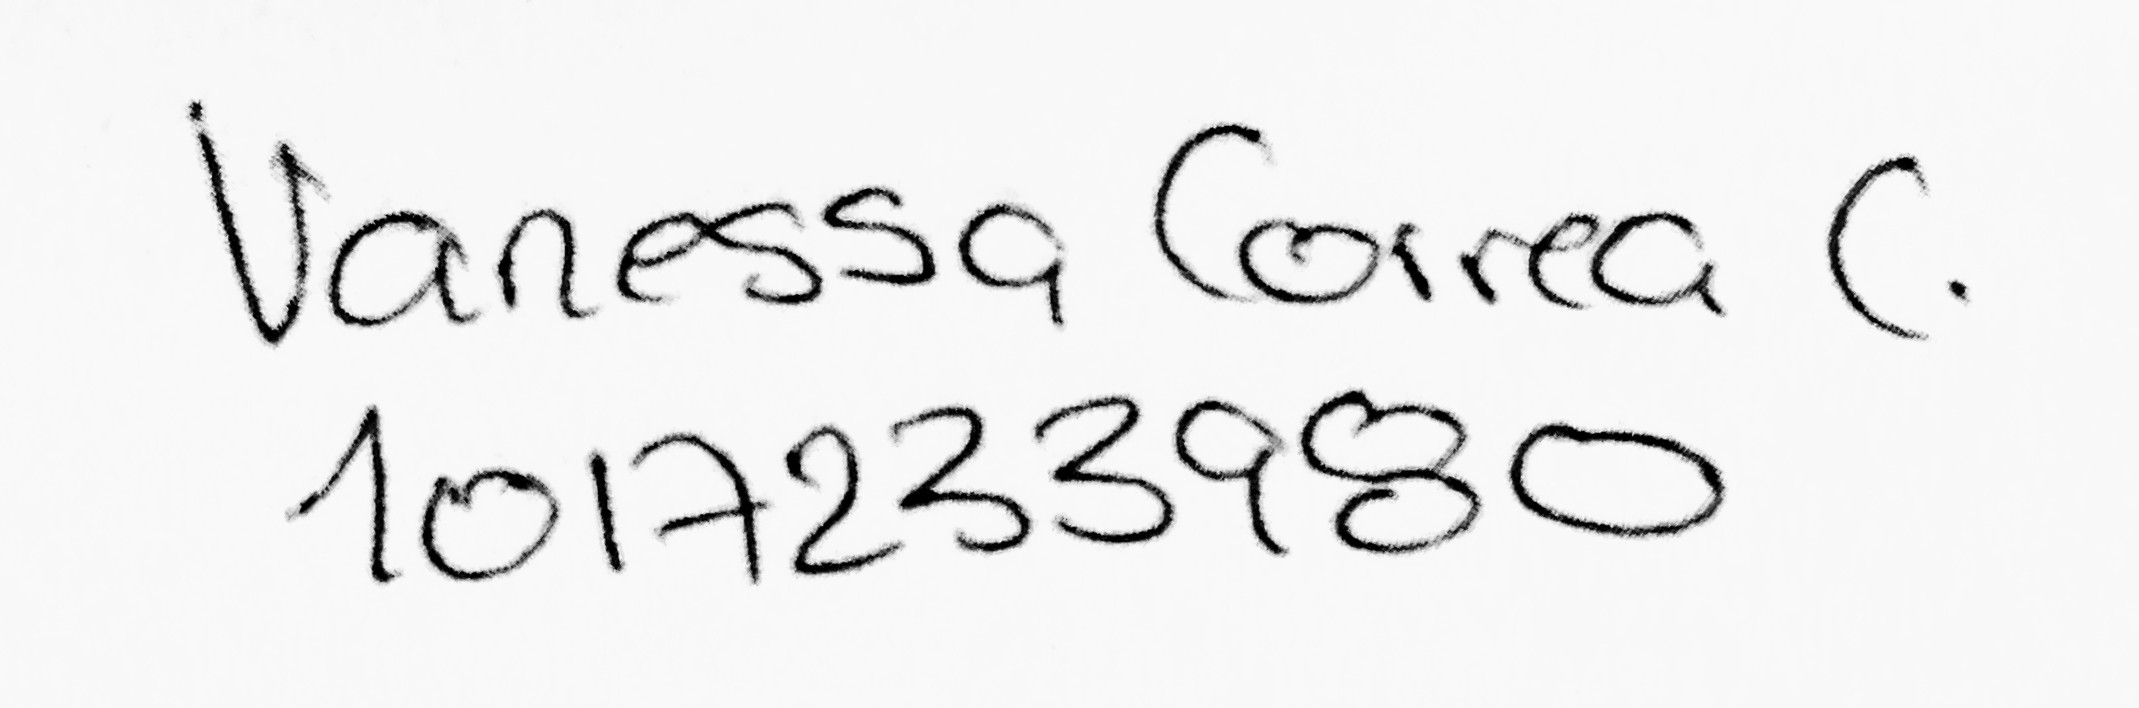 Vanessa Correa C.
1017233980